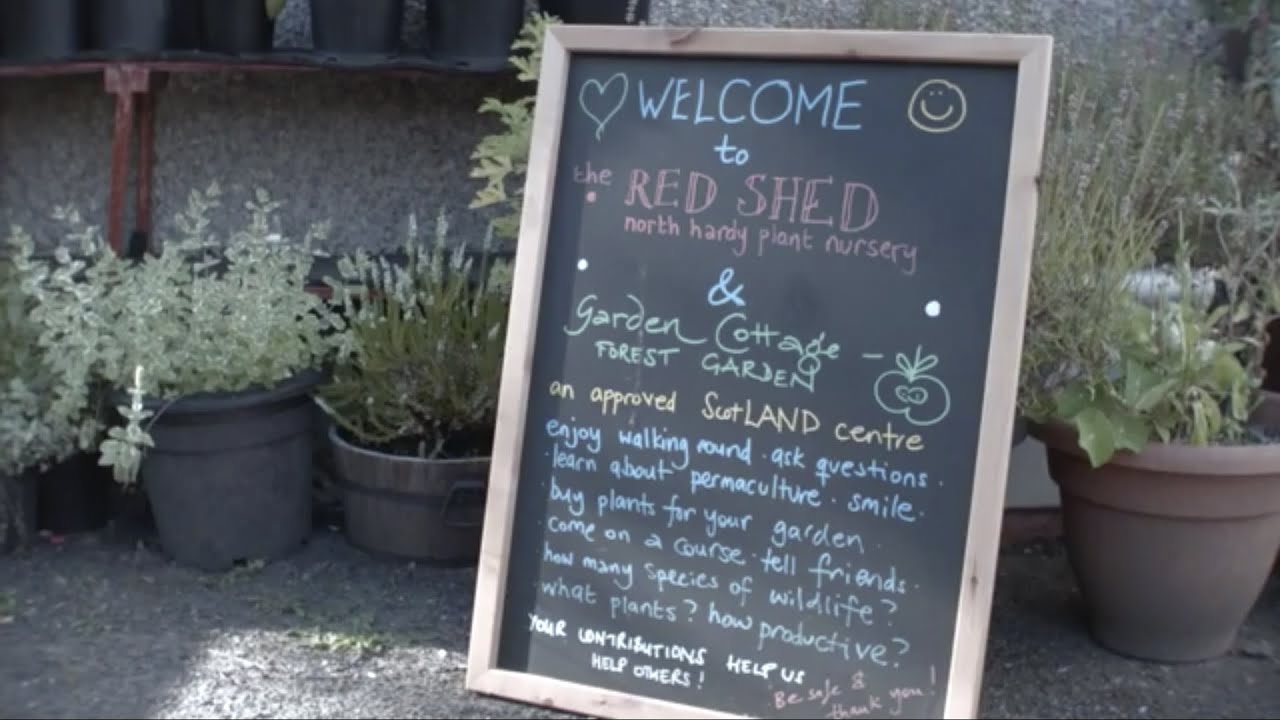 WELCOME
to
the RED SHED
north hardy plant nursery
&
Garden Cottage -
FOREST GARDEN
an approved ScotLAND centre
enjoy walking round · ask questions ·
· learn about permaculture · smile ·
buy plants for your garden ·
· come on a course · tell friends ·
· how many species of wildlife?
· what plants? how productive?
YOUR CONTRIBUTIONS HELP US
HELP OTHERS!
Be safe &
thank you!